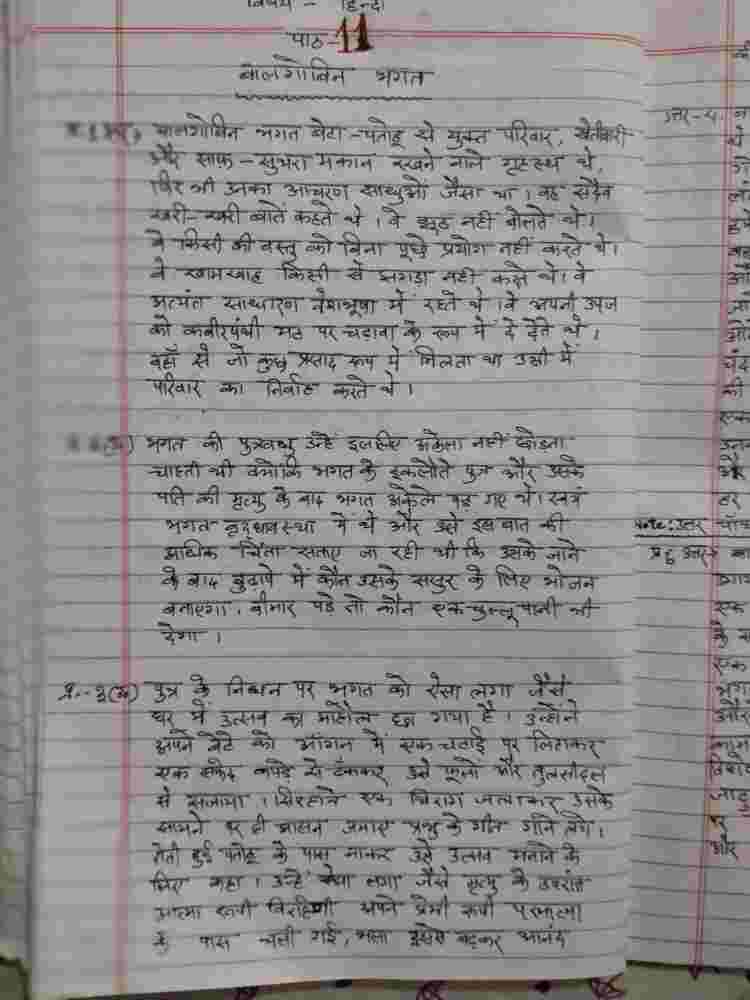 विषय - हिन्दी
पाठ-11
बालगोबिन भगत
बालगोबिन भगत बेटा-पतोहू से युक्त परिवार, खेतीबारी
और साफ़-सुथरा मकान रखने वाले गृहस्थ थे,
फिर भी उनका आचरण साधुओं जैसा था। वह सदैव
खरी-खरी बातें कहते थे। वे झूठ नहीं बोलते थे।
वे किसी की वस्तु को बिना पूछे प्रयोग नहीं करते थे।
वे खामखाह किसी से झगड़ा नहीं करते थे। वे
अत्यंत साधारण वेशभूषा में रहते थे। वे अपनी उपज
को कबीरपंथी मठ पर चढ़ावा के रूप में दे देते थे।
वहाँ से जो कुछ प्रसाद रूप में मिलता था उसी में
परिवार का निर्वाह करते थे।
भगत की पुत्रवधू उन्हें इसलिए अकेला नहीं छोड़ना
चाहती थी क्योंकि भगत के इकलौते पुत्र और उसके
पति की मृत्यु के बाद भगत अकेले पड़ गए थे। स्वयं
भगत वृद्धावस्था में थे और उसे इस बात की
अधिक चिंता सताए जा रही थी कि उसके जाने
के बाद बुढ़ापे में कौन उसके ससुर के लिए भोजन
बनाएगा। बीमार पड़े तो कौन एक चुल्लू पानी भी
देगा।
पुत्र के निधन पर भगत को ऐसा लगा जैसे
घर में उत्सव का माहौल बन गया है। उन्होंने
अपने बेटे को आँगन में एक चटाई पर लिटाकर
एक सफेद कपड़े से ढँककर उसे फूलों और तुलसीदल
से सजाया। सिरहाने एक चिराग जलाकर उसके
सामने पर ही आसन जमाए प्रभु के गीत गाने लगे।
रोती हुई पतोहू के पास जाकर उसे उत्सव मनाने के
लिए कहा। उन्हें ऐसा लगा जैसे मृत्यु के उपरांत
आत्मा रूपी विरहिणी अपने प्रेमी रूपी परमात्मा
के पास चली गई, भला इससे बढ़कर आनंद